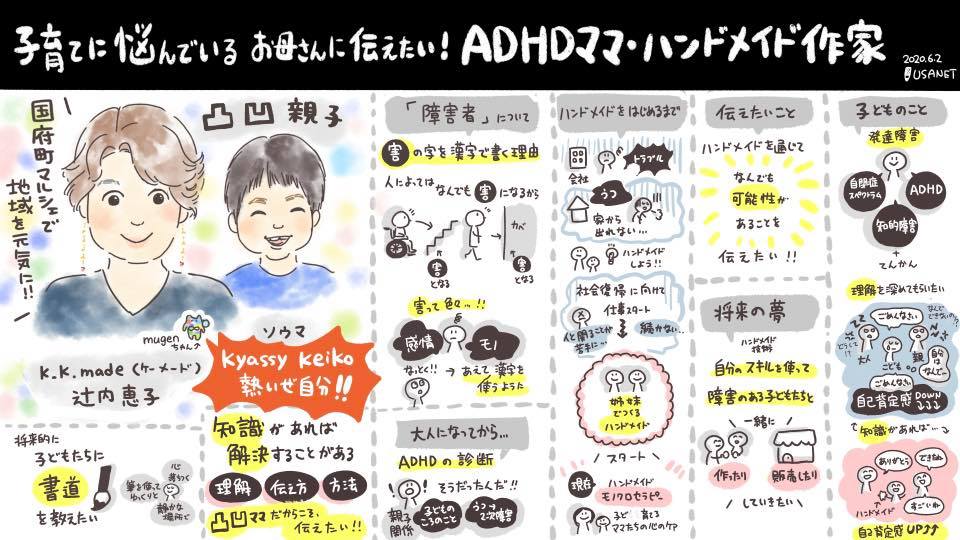 子育てに悩んでいる お母さんに伝えたい! ADHDママ・ハンドメイド作家
2020.6.2
USANET
国府町マルシェで
地域を元気に!!
凸凹親子
mugen
ちゃん↗
ソウマ
K.K.made (ケーメード)
辻内恵子
Kyassy Keika
熱いぜ自分!!
将来的に
子どもたちに
書道
を教えたい
筆を使って
ゆっくりと
心
落ちつく
静かな
場所で
知識があれば
解決することがある
理解 伝え方 方法
凸凹ママだからこそ、
伝えたい!!
「障害者」について
害の字を漢字で書く理由
人によってはなんでも害になるから
カベ
害
となる
害
となる
害って色々…!!
感情 モノ
なっとく!!
→あえて漢字を
使うようた
大人になってから…
ADHDの診断
そうだったんだ!!
親子
関係
子どもの
ころのこと
うつ→
2次障害
ハンドメイドをはじめるまで
会社
トラブル
うつ
家から
出れない…
ハンドメイド
しよう!!
社会復帰に向けて
仕事スタート
人と関ることが
苦手に…
続かない…
姉妹
でつくる
ハンドメイド
スタート
現在
ハンドメイド
モノクロセラピー
子ども育てる
ママたちの心のケア
伝えたいこと
ハンドメイドを通じて
なんでも
可能性が
あることを
伝えたい!!
将来の夢
ハンドメイド
技術
自分のスキルを使って
障害のある子どもたちと
一緒に
作ったり 販売したり
していきたい
子どものこと
発達障害
自閉症
スペクトラム
ADHD
知的障害
+
てんかん
理解を深めてもらいたい
ごめんなさい
なんで
できないの?!
どうして!?
大人
こども
親
自分は
なんで…
ごめんなさい
自己肯定感DOWN↓↓↓
で知識があれば…
ありがとう
できたね
ハンドメイド
すごいね
自己肯定感UP↑↑